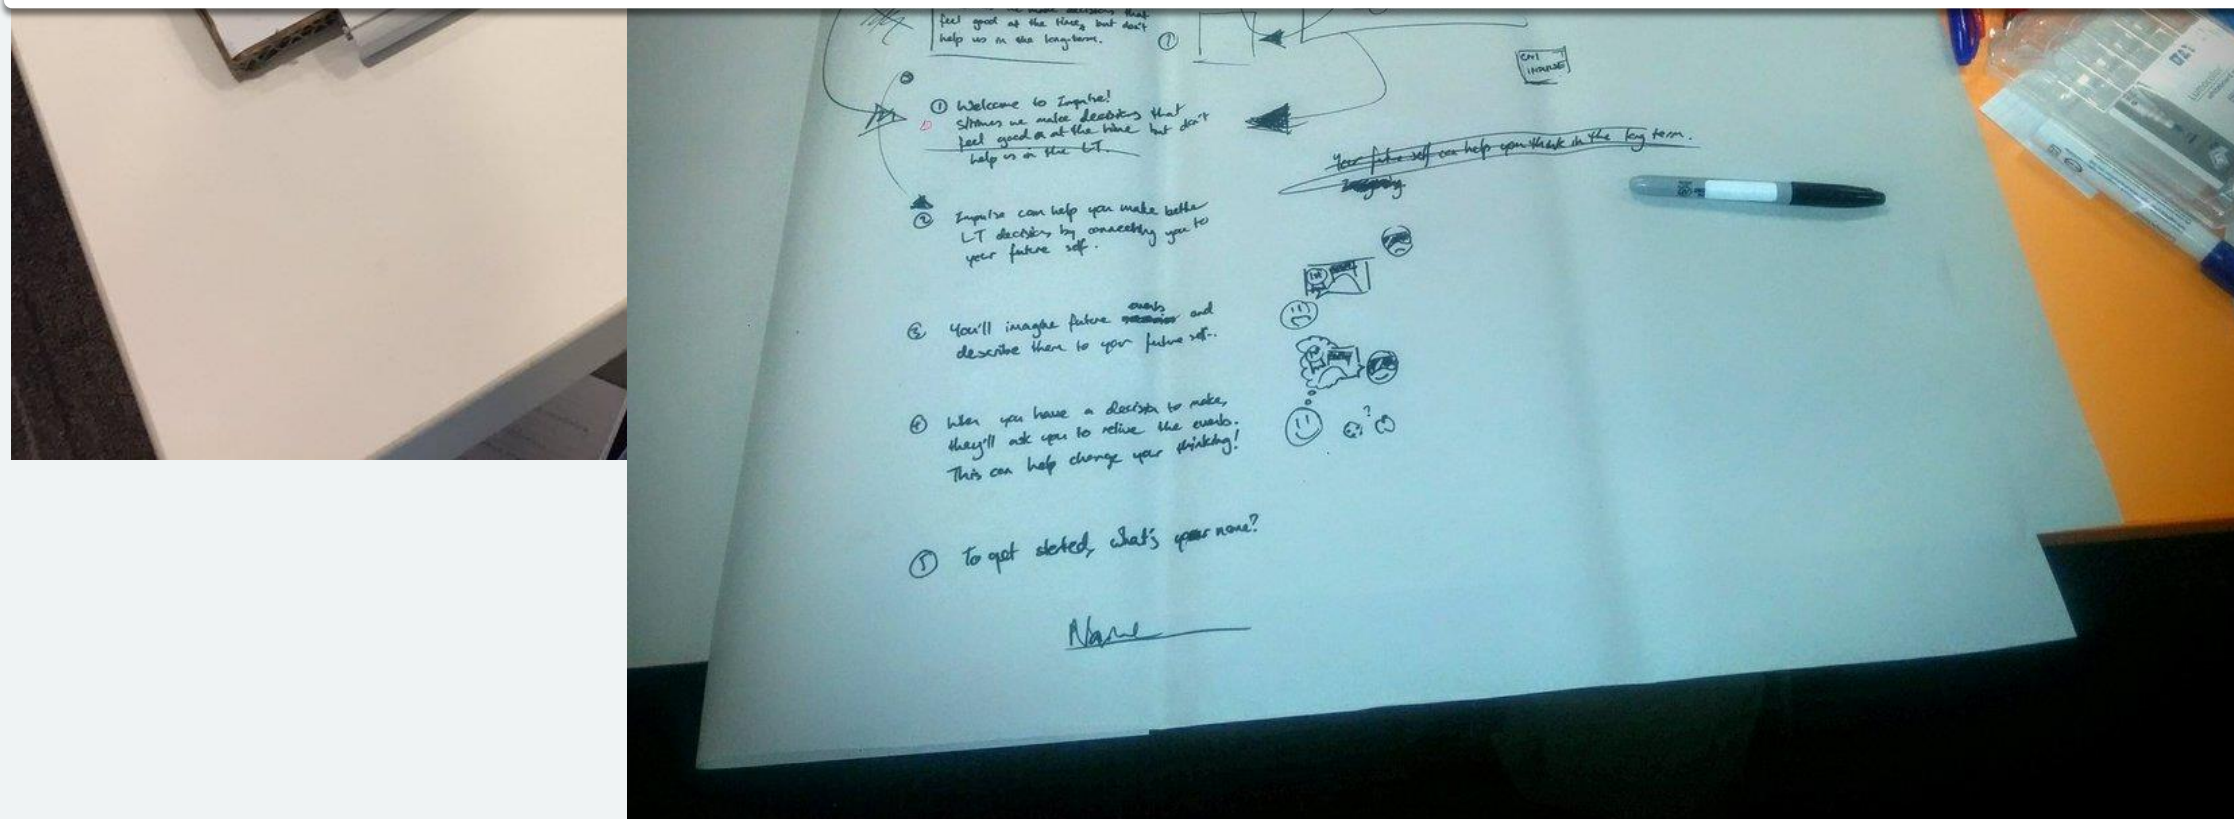 feel good at the time, but don't
help us in the long-term.
①
CM1
IMPULSE
① Welcome to Impulse!
S/times we make decisions that
feel good at the time but don't
help us in the LT.
Your future self can help you think in the long term.
Imagining
② Impulse can help you make better
LT decisions by connecting you to
your future self.
③ You'll imagine future events and
describe them to your future self..
④ When you have a decision to make,
they'll ask you to relive the events.
This can help change your thinking!
?
⑤ To get started, what's your name?
Name